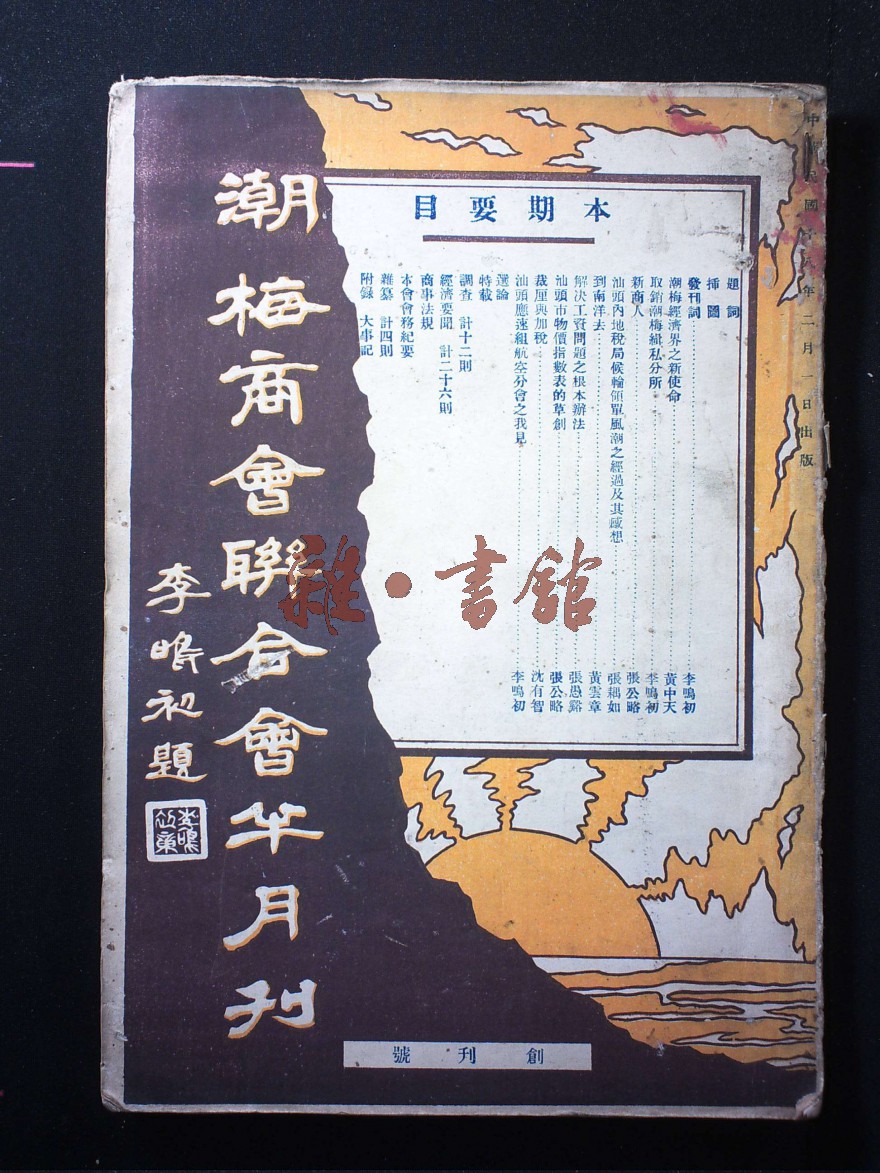 中民國十八年二月一日出版
本期要目
題詞
插圖
發刊詞 李鳴初
潮梅經濟界之新使命 黃中天
取銷潮梅緝私分所 李鳴初
新商人 張公略
汕頭內地稅局候輪領單風潮之經過及其感想 張耦如
到南洋去 黃雲章
解決工資問題之根本辦法 張愚谿
汕頭市物價指數表的草創 張公略
裁厘與加稅 沈有智
汕頭應速組航空分會之我見 李鳴初
選論
特載
調查 計十二則
經濟要聞 計二十六則
商事法規
本會會務紀要
雜纂 計四則
附錄 大事記
潮梅商會聯合會半月刊
李鳴初題
創刊號
雜·書館